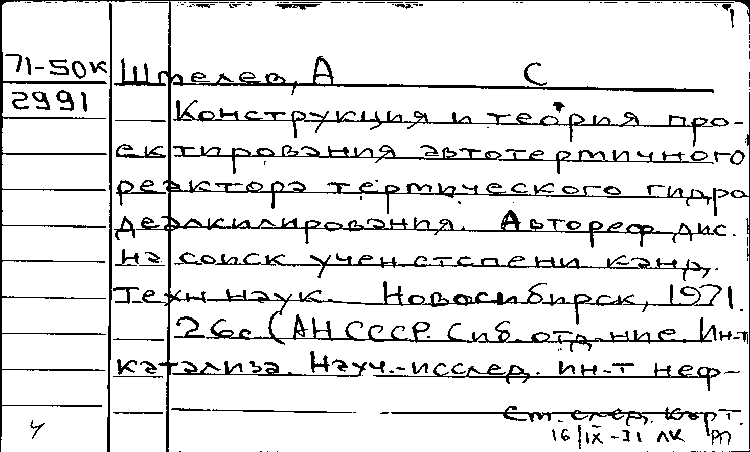 71-50к Шмелев, А С
2991
Конструкция и теория про-
ектирования автотермичного
реактора термического гидро
деалкилирования. Автореф дис.
на соиск учен степени канд.
техн наук. Новосибирск, 1971.
26с (АН СССР. Сиб. отд-ние. Ин-т
катализа. Науч.-исслед. ин-т неф-
См. след. карт.
16/IX-71 ЛК